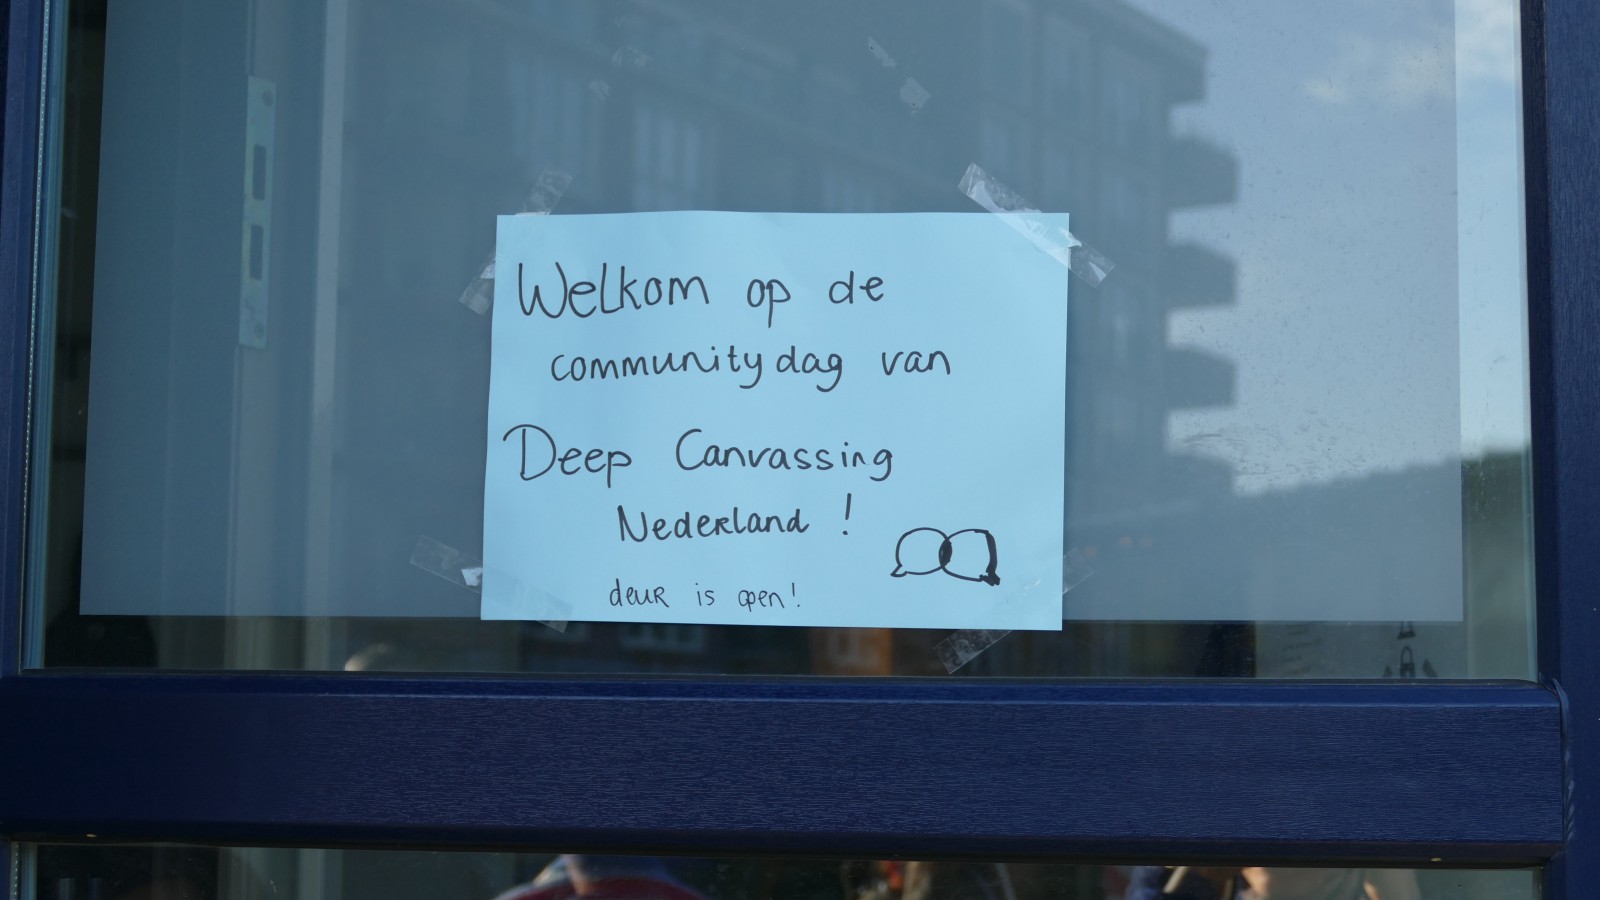 Welkom op de
communitydag van
Deep Canvassing
Nederland!
deur is open!